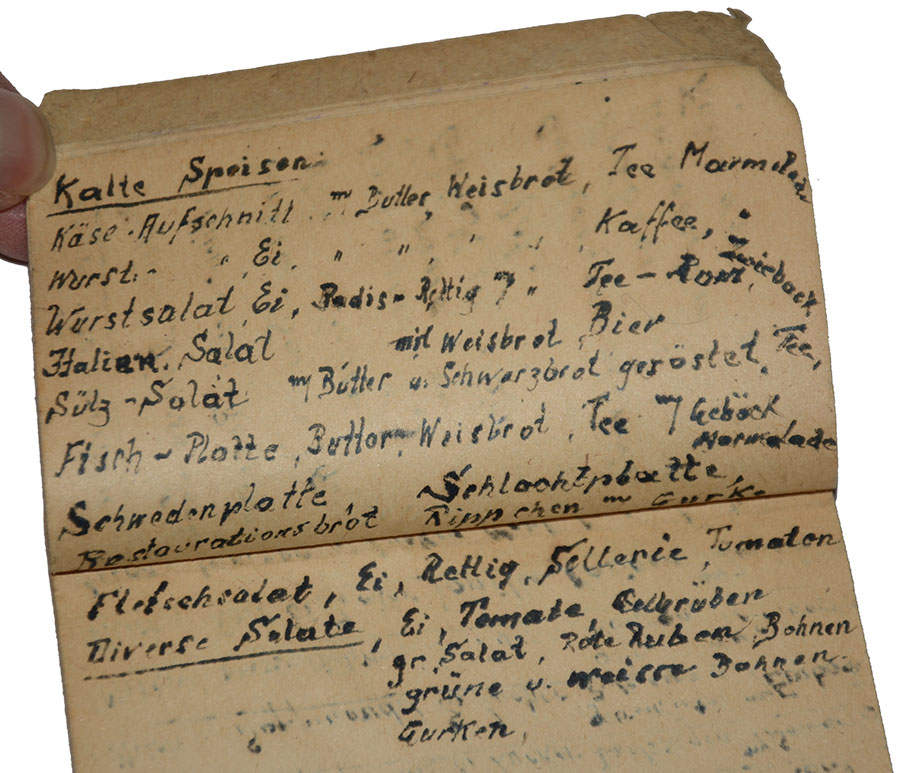 Kalte Speisen
Käse-Aufschnitt m/ Butter, Weisbrot, Tee Marmelade
Wurst- " , Ei , " " , " " , Kaffee, "
Wurstsalat, Ei, Radis-Rettig m/ " Tee-Rom, Zwieback
Italien. Salat mit Weisbrot, Bier
Sülz-Salat m/ Butter u. Schwarzbrot geröstet, Tee,
Fisch-Platte, Butter, Weisbrot, Tee m/ Geböck
Marmelade
Schwedenplatte, Schlachtplatte,
Restaurationsbrot Rippchen m/ Gurke
Fleischsalat, Ei, Rettig, Sellerie, Tomaten
Diverse Salate, Ei, Tomate, Gelbrüben
gr. Salat, Rote Ruben, Bohnen
grüne u. weisse Bohnen.
Gurken,